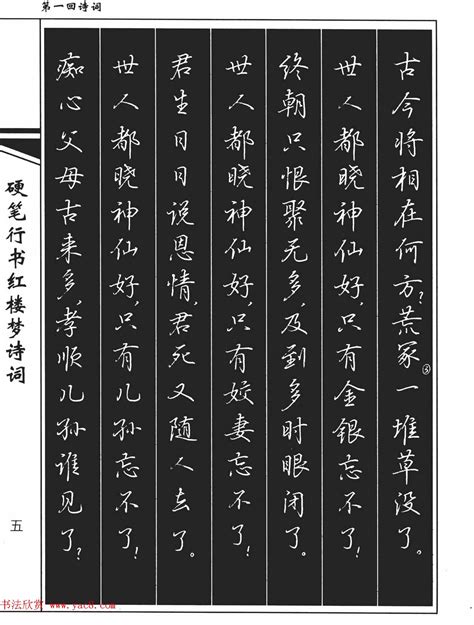 第一回诗词
古今将相在何方?荒冢③一堆草没了。
世人都晓神仙好,只有金银忘不了!
终朝只恨聚无多,及到多时眼闭了。
世人都晓神仙好,只有姣妻忘不了!
君生日日说恩情,君死又随人去了。
世人都晓神仙好,只有儿孙忘不了!
痴心父母古来多,孝顺儿孙谁见了?
硬笔行书红楼梦诗词
五
书法欣赏 www.yac8.com